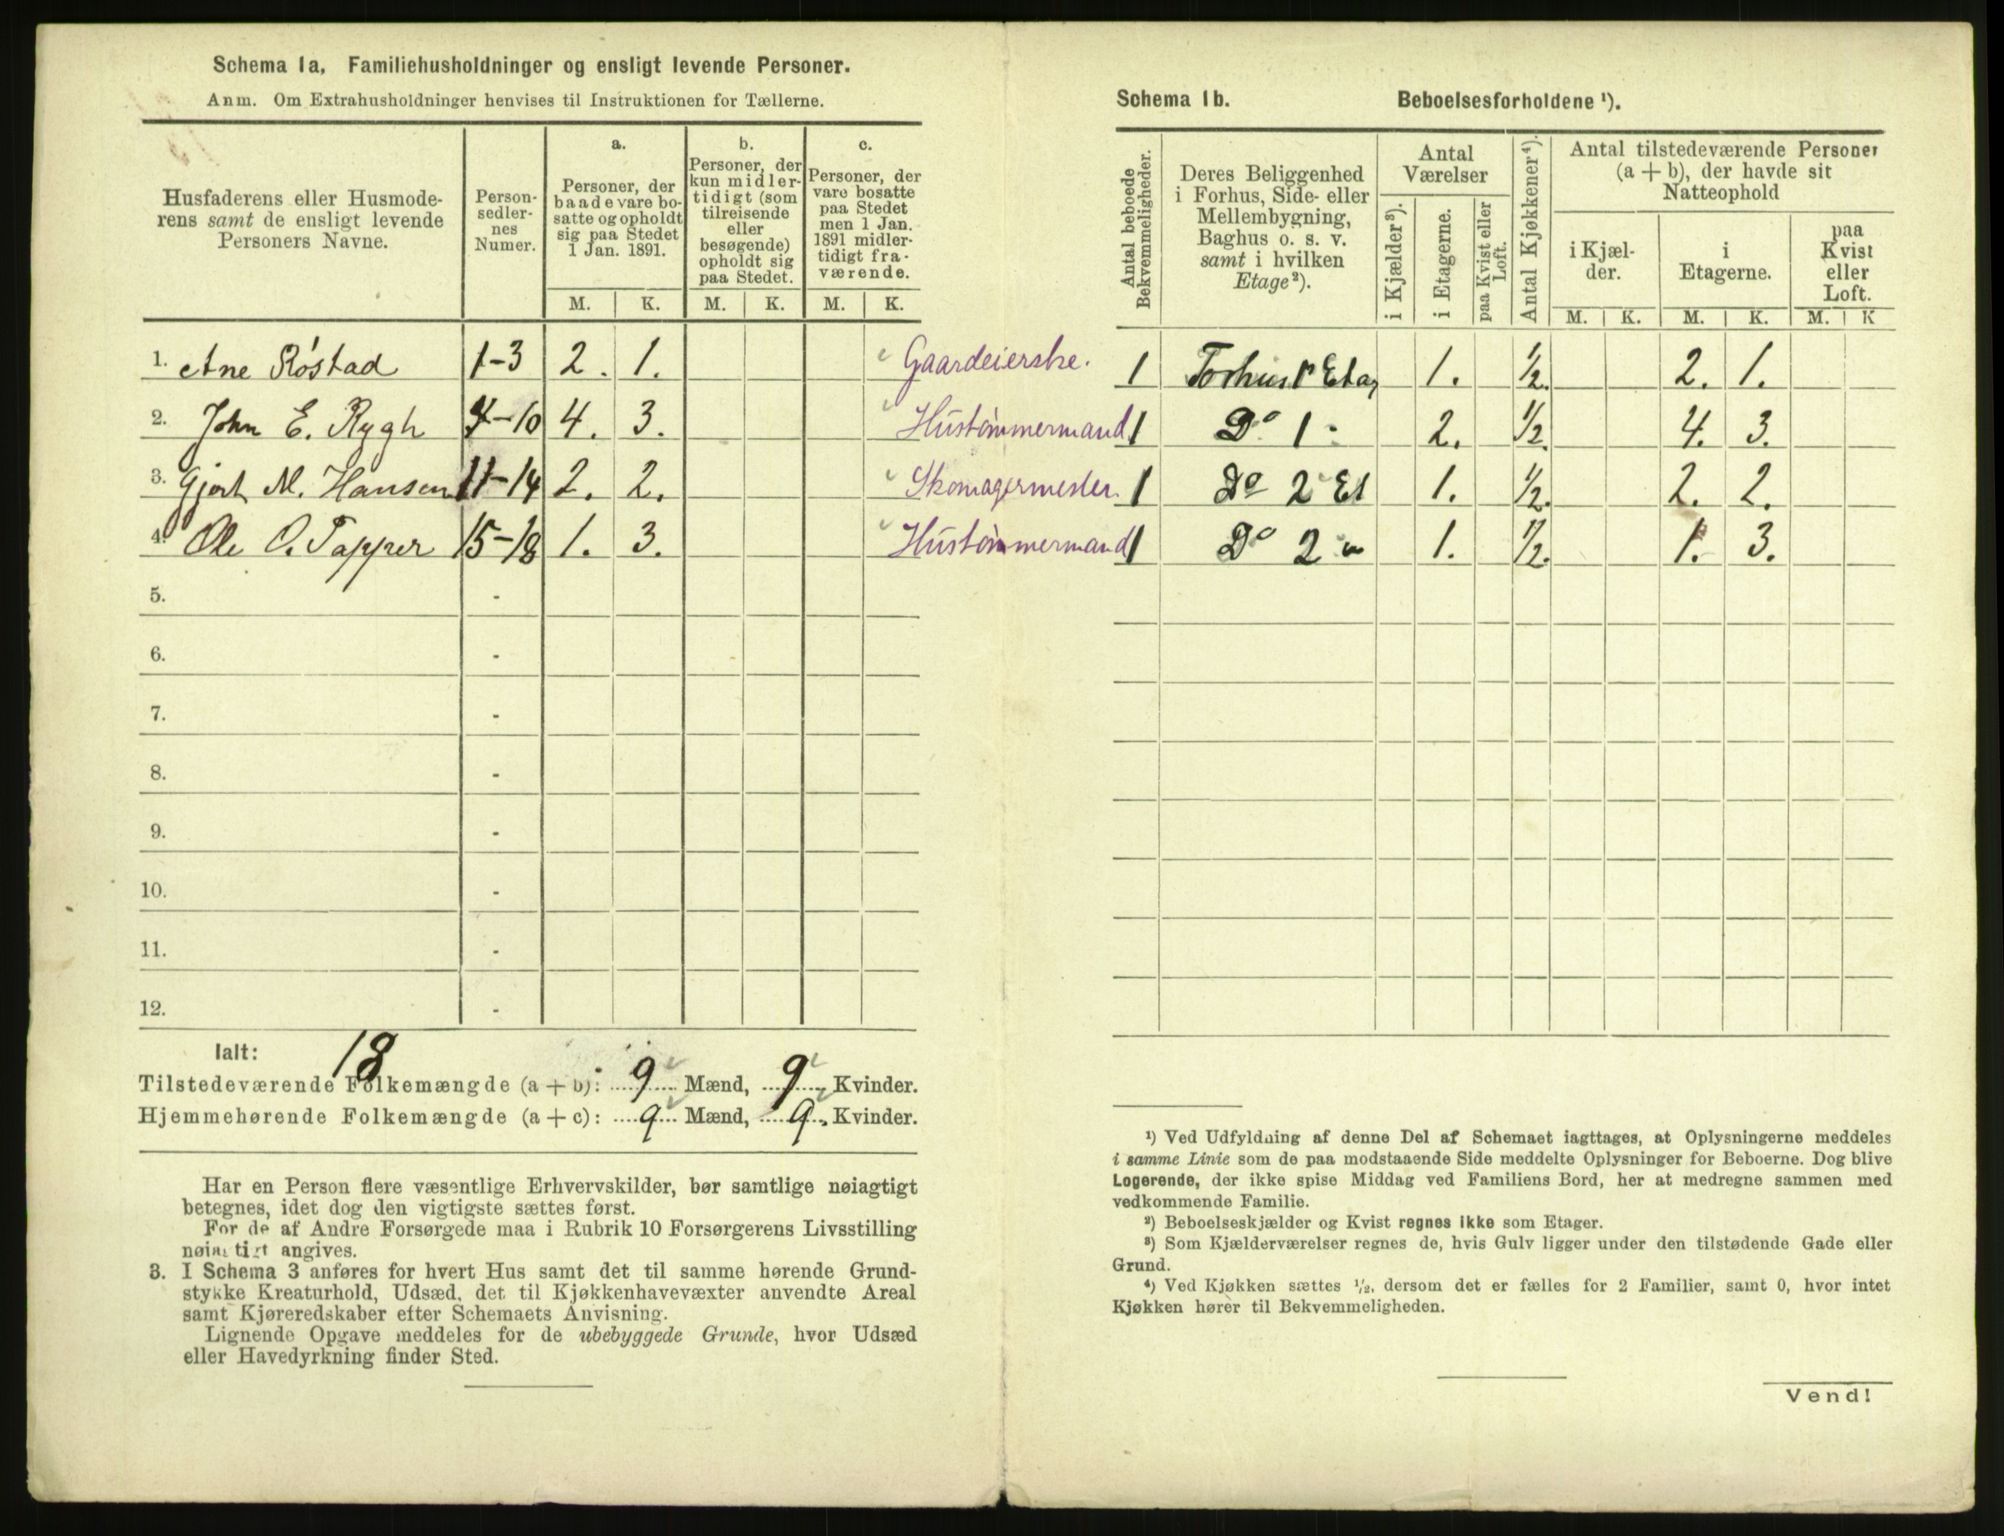 Schema 1a, Familiehusholdninger og ensligt levende Personer.
Anm. Om Extrahusholdninger henvises til Instruktionen for Tællerne.
Husfaderens eller Husmode-
rens samt de ensligt levende
Personers Navne.
Person-
sedler-
nes
Numer.
a.
Personer, der
baade vare bo-
satte og opholdt
sig paa Stedet
1 Jan. 1891.
b.
Personer, der
kun midler-
tidigt (som
tilreisende
eller
besøgende)
opholdt sig
paa Stedet.
c.
Personer, der
vare bosatte
paa Stedet
men 1 Jan.
1891 midler-
tidigt fra-
værende.
M. K. M. K. M. K.
1. Ane Róstad 1-3 2. 1. Gaardeierske.
2. John E. Rygh 4-10 4. 3. Hustømmermand
3. Gjert M. Hansen 11-14 2. 2. Skomagermester.
4. Ole O. Tapper 15-18 1. 3. Hustømmermand
5. -
6. -
7. -
8. -
9. -
10. -
11. -
12. -
Ialt: 18
Tilstedeværende Folkemængde (a + b): 9 Mænd, 9 Kvinder.
Hjemmehørende Folkemængde (a + c): 9 Mænd, 9. Kvinder.
Har en Person flere væsentlige Erhvervskilder, bør samtlige nøiagtigt
betegnes, idet dog den vigtigste sættes først.
For de af Andre Forsørgede maa i Rubrik 10 Forsørgerens Livsstilling
nøiagtigt angives.
3. I Schema 3 anføres for hvert Hus samt det til samme hørende Grund-
stykke Kreaturhold, Udsæd, det til Kjøkkenhavevæxter anvendte Areal
samt Kjøreredskaber efter Schemaets Anvisning.
Lignende Opgave meddeles for de ubebyggede Grunde, hvor Udsæd
eller Havedyrkning finder Sted.
Schema 1b. Beboelsesforholdene ¹).
Antal beboede
Bekvemmeligheder.
Deres Beliggenhed
i Forhus, Side- eller
Mellembygning,
Baghus o. s. v.
samt i hvilken
Etage²).
Antal
Værelser
i Kjælder³).
i Etagerne.
paa Kvist eller
Loft.
Antal Kjøkkener⁴).
Antal tilstedeværende Personer
(a + b), der havde sit
Natteophold
i Kjæl-
der.
i
Etagerne.
paa
Kvist
eller
Loft.
M. K. M. K. M. K
1 Forhus 1ᵉ Etag 1. ½. 2. 1.
1 Dº 1 " 2. ½. 4. 3.
1 Dº 2 Et 1. ½. 2. 2.
1 Dº 2 " 1. ½. 1. 3.
¹) Ved Udfyldning af denne Del af Schemaet iagttages, at Oplysningerne meddeles
i samme Linie som de paa modstaaende Side meddelte Oplysninger for Beboerne. Dog blive
Logerende, der ikke spise Middag ved Familiens Bord, her at medregne sammen med
vedkommende Familie.
²) Beboelseskjælder og Kvist regnes ikke som Etager.
³) Som Kjælderværelser regnes de, hvis Gulv ligger under den tilstødende Gade eller
Grund.
⁴) Ved Kjøkken sættes ½, dersom det er fælles for 2 Familier, samt 0, hvor intet
Kjøkken hører til Bekvemmeligheden.
Vend!